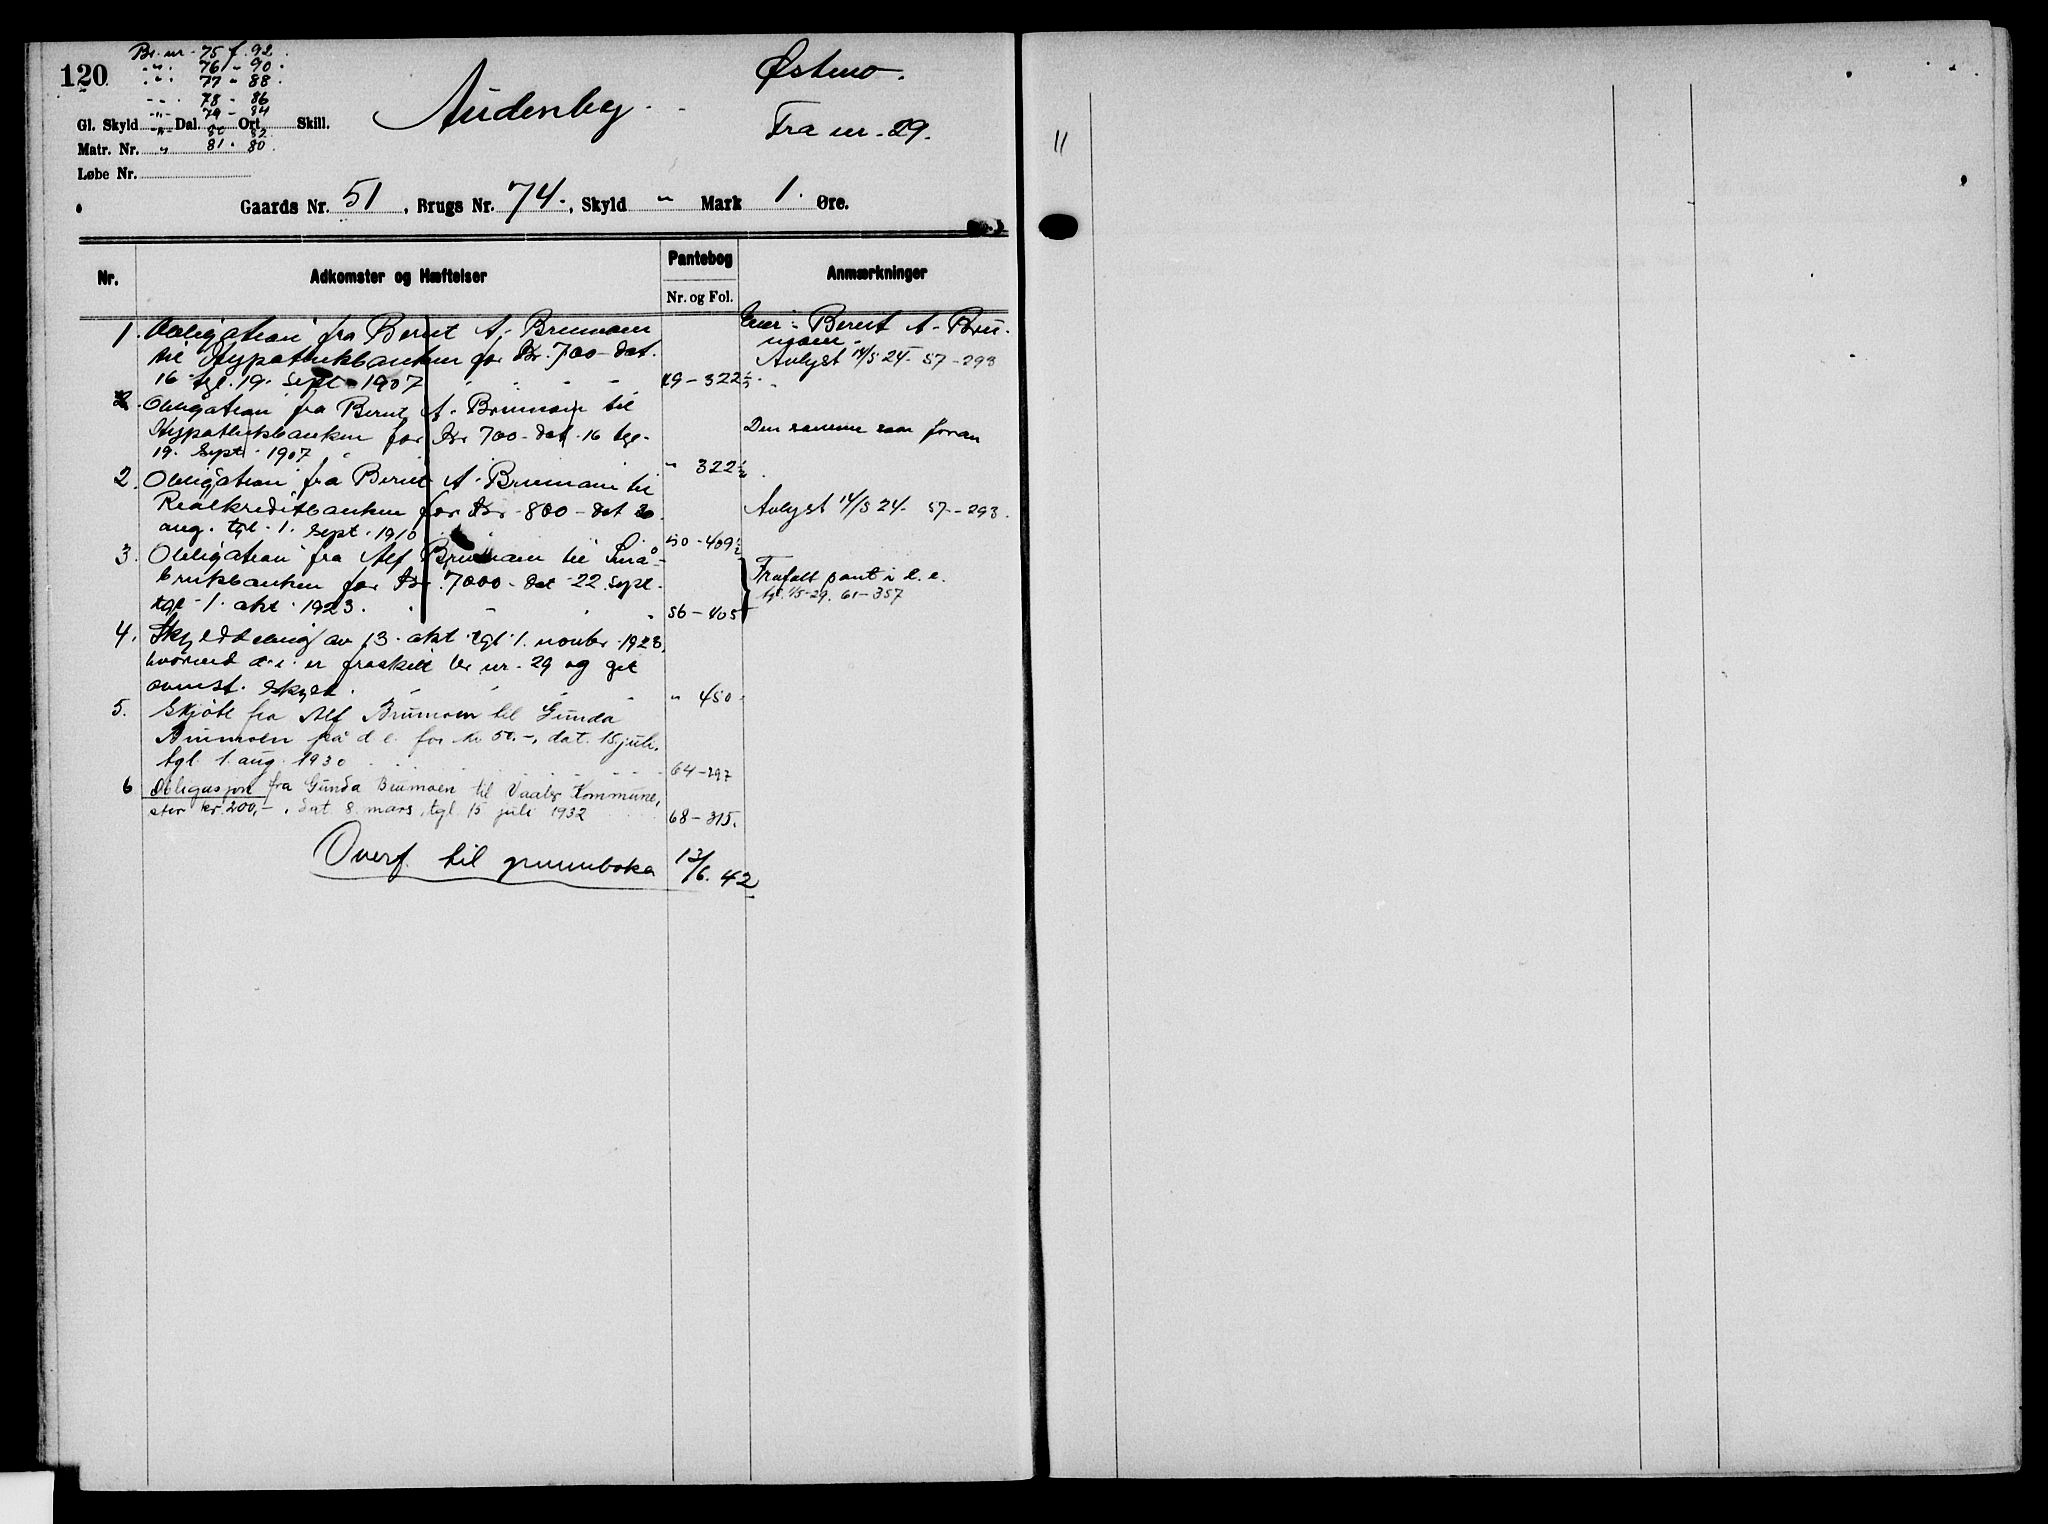 120
Br. nr - 75 f. 92.
" 76 - 90.
" 77 - 88.
" 78 - 86
" 79 - 84
Gl. Skyld " Dal. 80 Ort 82 Skill.
Matr. Nr. " 81 - 80.
Løbe Nr.
Audenby.
Østmo.
Fra nr. 29.
Gaards Nr. 51, Brugs Nr. 74., Skyld " Mark 1. Øre.
Nr.
Adkomster og Hæftelser
Pantebog
Nr. og Fol.
Anmærkninger
1. Obligation fra Bernt A. Brumoen
til Hypothekbanken for Kr. 700 - dat.
16 tgl. 19. sept. 1907 - 322½
Eier: Bernt A. Bru-
moen.
Avlyst 14/5 24 - 57 - 293
2. Obligation fra Bernt A. Brumoen til
Hypothekbanken for Kr 700 - dat. 16 tgl.
19. Sept. 1907 " 322½
Den samme som foran
2. Obligation fra Bernt A. Brumoen til
Realkreditbanken for Kr. 800 - dat 20
aug. tgl. 1. sept. 1910 50 - 409½
Avlyst 14/5 24. 57 - 293.
3. Obligation fra Alf Brumoen til Små-
brukbanken for Kr. 7000 - dat 22. sept.
tgl 1. okt. 1923. 56 - 405
Frafalt pant i d. e.
tgl. 15-29. 61 - 357
4. Skylddeling av 13. okt. tgl. 1. novbr. 1923,
hvorved d. e. er fraskilt br nr. 29 og git
ovenst. skyld. " 450.
5. Skjøte fra Alf Brumoen til Gunda
Brumoen på d. e. for kr 50.-, dat. 15 juli,
tgl. 1. aug. 1930 64 - 297
6 Obligasjon fra Gunda Brumoen til Vaaler Kommune,
stor kr. 200,-, dat. 8. mars, tgl. 15 juli 1932 68 - 315.
Overf. til grunnboka 13/6. 42
11